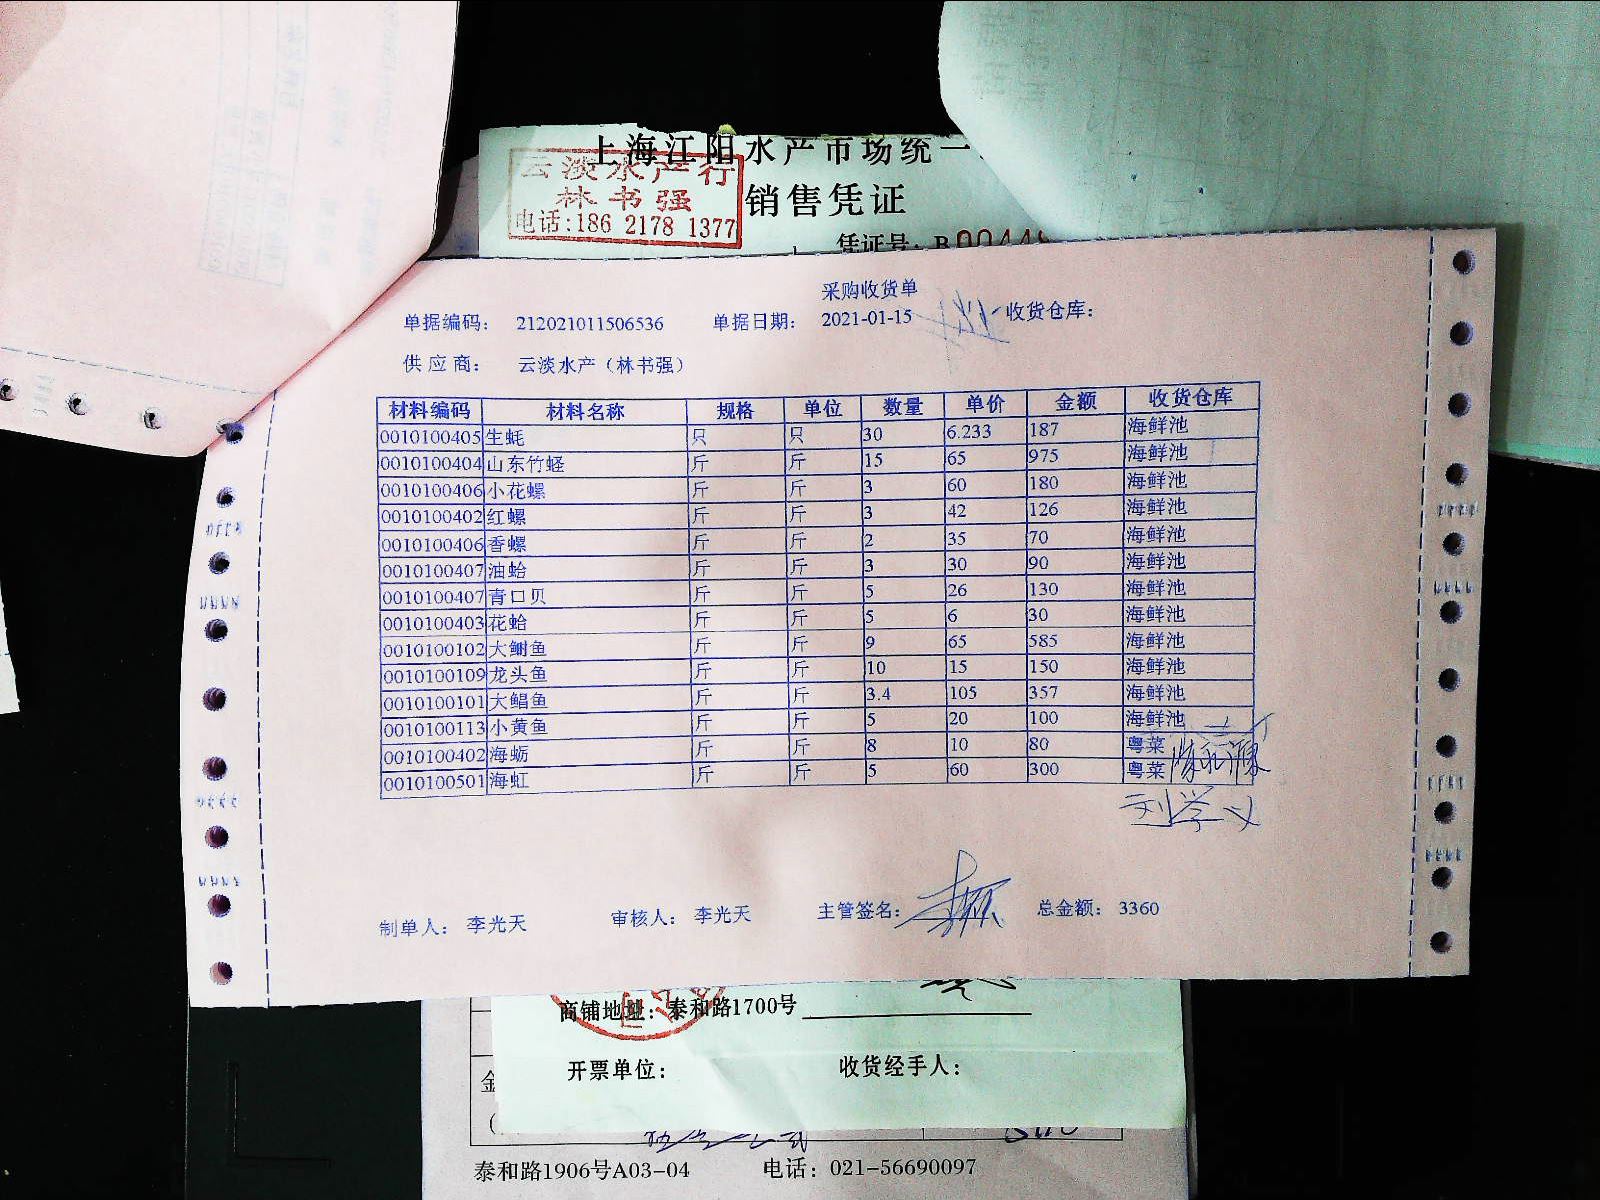 上海江阳水产市场统一
云淡水产行
林书强
电话:186 2178 1377
销售凭证
凭证号: B00448
采购收货单
单据编码: 212021011506536 单据日期: 2021-01-15 收货仓库:
供应商: 云淡水产（林书强）
材料编码 材料名称 规格 单位 数量 单价 金额 收货仓库
0010100405 生蚝 只 只 30 6.233 187 海鲜池
0010100404 山东竹蛏 斤 斤 15 65 975 海鲜池
0010100406 小花螺 斤 斤 3 60 180 海鲜池
0010100402 红螺 斤 斤 3 42 126 海鲜池
0010100406 香螺 斤 斤 2 35 70 海鲜池
0010100407 油蛤 斤 斤 3 30 90 海鲜池
0010100407 青口贝 斤 斤 5 26 130 海鲜池
0010100403 花蛤 斤 斤 5 6 30 海鲜池
0010100102 大鲥鱼 斤 斤 9 65 585 海鲜池
0010100109 龙头鱼 斤 斤 10 15 150 海鲜池
0010100101 大鲳鱼 斤 斤 3.4 105 357 海鲜池
0010100113 小黄鱼 斤 斤 5 20 100 海鲜池
0010100402 海蛎 斤 斤 8 10 80 粤菜
0010100501 海虹 斤 斤 5 60 300 粤菜
刘学义
制单人: 李光天 审核人: 李光天 主管签名: 总金额: 3360
商铺地址: 泰和路1700号
开票单位: 收货经手人:
金
泰和路1906号A03-04 电话: 021-56690097